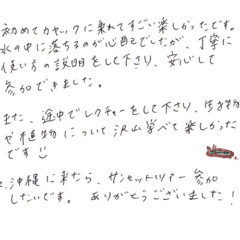 初めてカヤックに乗れてすごい楽しかったです。
水の中に落ちるのが心配でしたが、丁寧に
使い方の説明をして下さり、安心して
参加できました。
また、途中でレクチャーをして下さり、生き物
や植物について沢山学べて楽しかった
です
沖縄に来たら、サンセットツアー参加
したいです。 ありがとうございました!